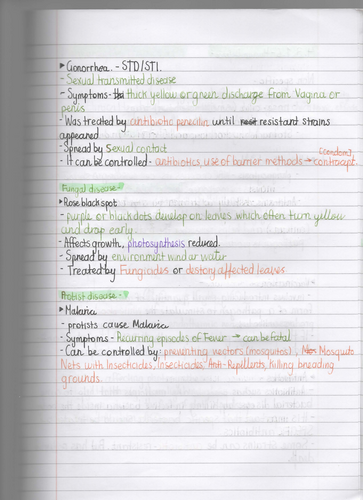 ▸Gonorrhea. - STD/STI.
- Sexual transmitted disease
- Symptoms - thick yellow or green discharge from Vagina or
penis
- Was treated by antibiotic penicilin until resistant strains
appeared
- Spread by Sexual contact
[condom]
- It can be controlled - antibiotics, use of barrier methods → contracept.
Fungal disease -
▸Rose black spot
- purple or black dots develop on leaves which often turn yellow
and drop early.
- Affects growth, photosynthesis reduced.
- Spread by environment wind or water
- Treated by Fungicides or destory affected leaves
Protist disease -
▸Malaria
- protists cause Malaria
- Symptoms - Recurring episodes of Fever → can be fatal
- Can be controlled by: preventing vectors (mosquitos), Mosquite
Nets with Insecticides, Insecticides, Anti-Repellents, Killing breading
grounds.